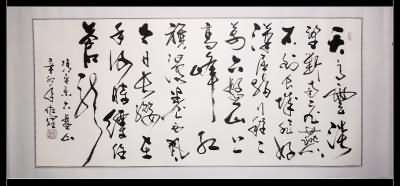 天高雲淡
望断南飞雁
不到長城非好
漢屈指行程二
萬六盤山上
高峰红
旗漫卷西風
今日長缨在
手何時缚住
苍龙
清平乐六盘山
辛卯年